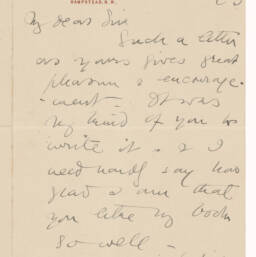 HAMPSTEAD, N.W.
My dear Sir
Such a letter
as yours gives great
pleasure & encourage-
-ment. It was
very kind of you to
write it & I
need hardly say how
glad I am that
you like my books
so well -